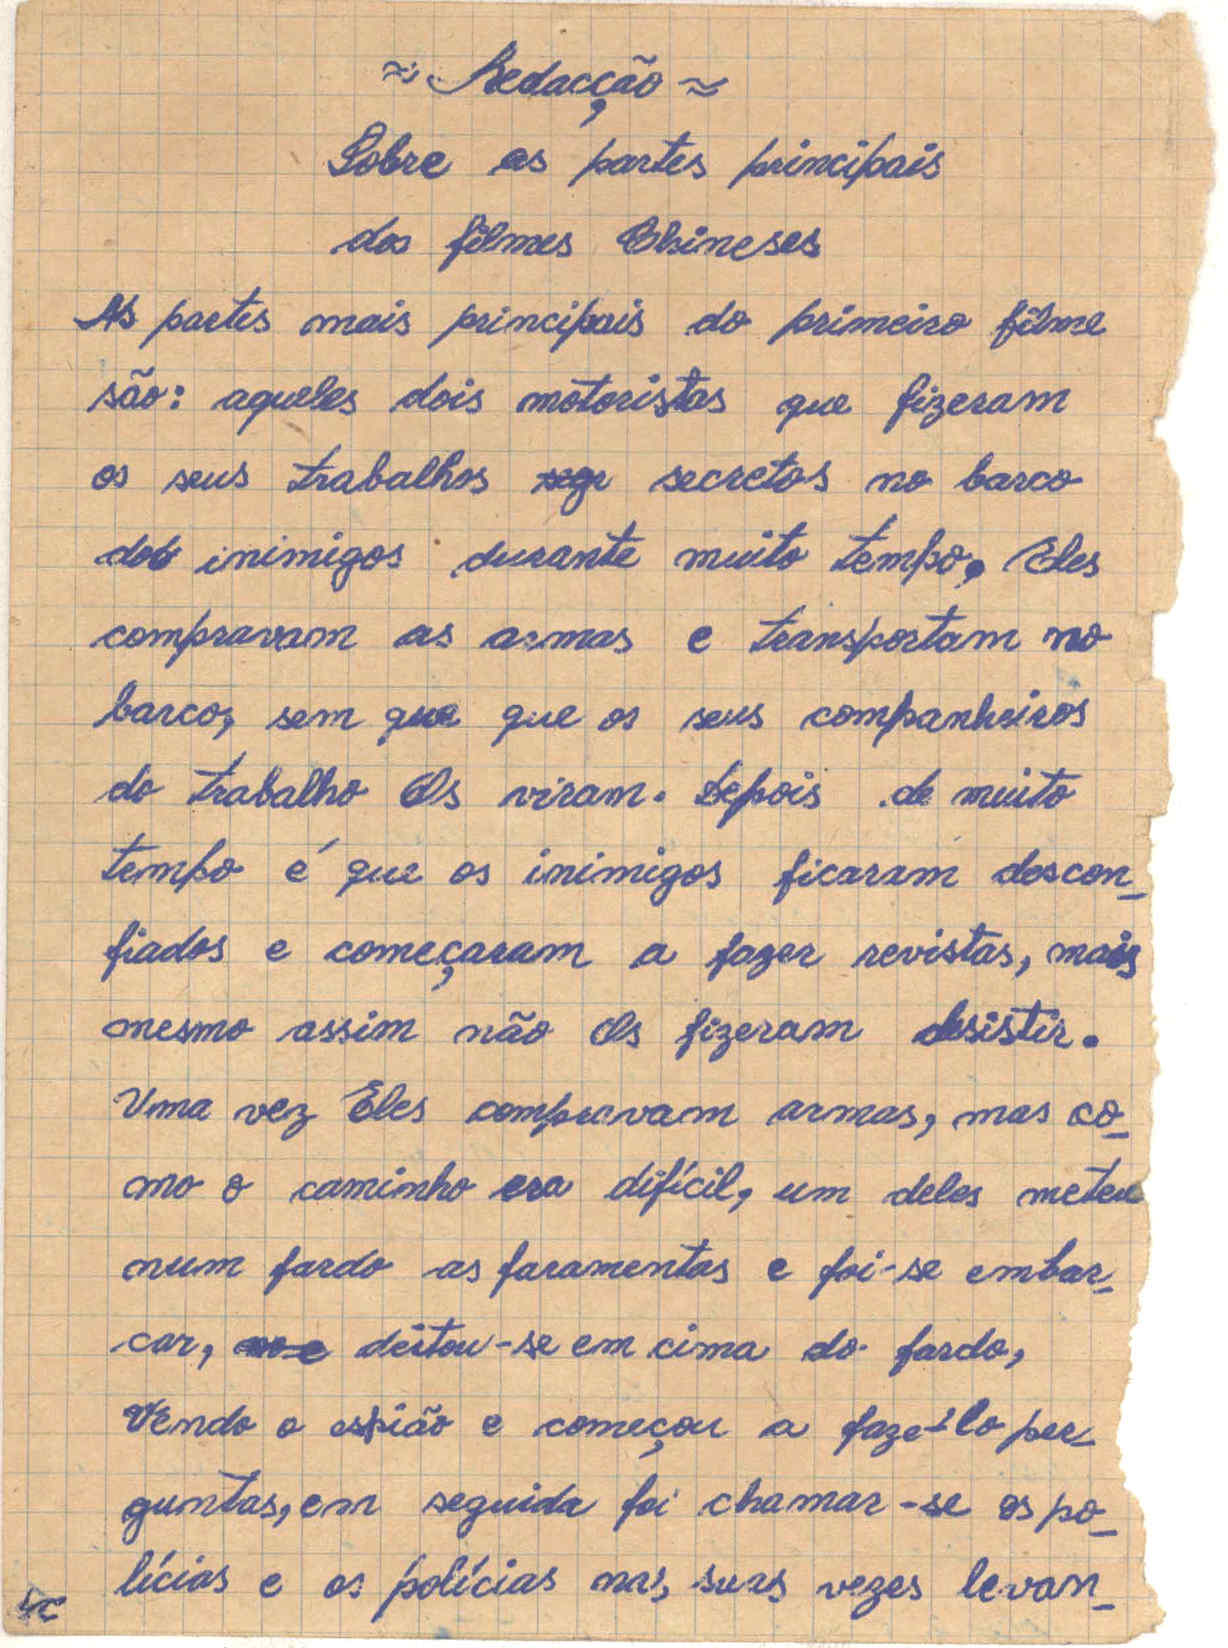 ≈ Redacção ≈
Sobre as partes principais
dos filmes Chineses
As partes mais principais do primeiro filme
são: aqueles dois motoristas que fizeram
os seus trabalhos secretos no barco
dos inimigos durante muito tempo, Eles
compravam as armas e transportam no
barco, sem que que os seus companheiros
do trabalho Os viram. Depois de muito
tempo é que os inimigos ficaram descon_
fiados e começaram a fazer revistas, mais
mesmo assim não Os fizeram desistir.
Uma vez Eles compravam armas, mas co_
mo o caminho era difícil, um deles meteu
num fardo as faramentas e foi-se embar_
car, deitou-se em cima do fardo,
Vendo o espião e começou a faze-lo per_
guntas, em seguida foi chamar-se os po_
lícias e os polícias nas, suas vezes levan_